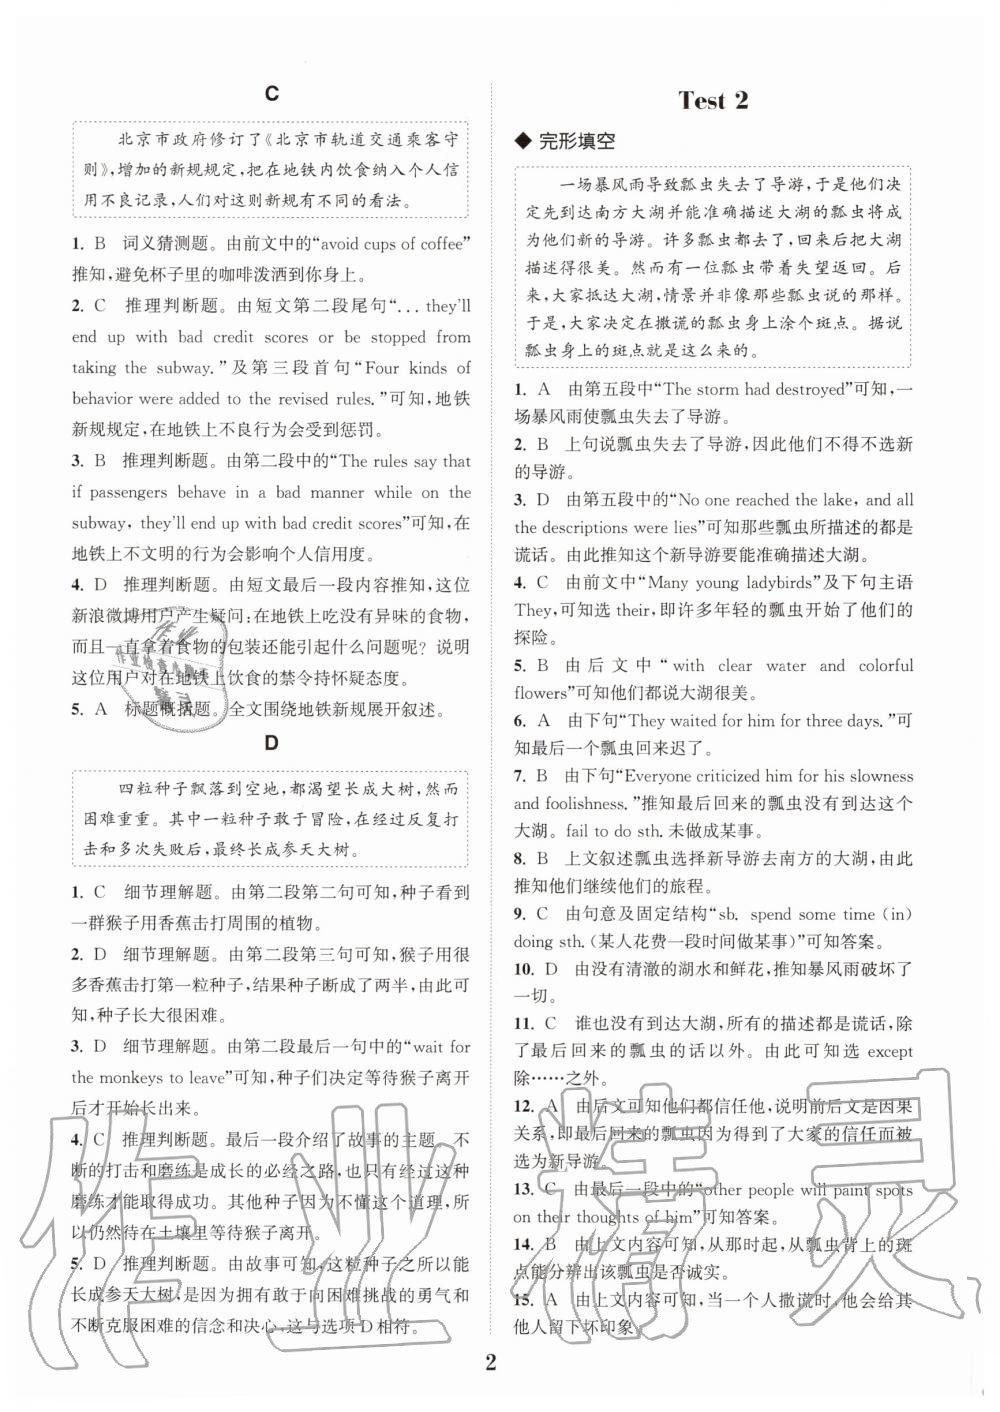 C
北京市政府修订了《北京市轨道交通乘客守
则》,增加的新规规定,把在地铁内饮食纳入个人信
用不良记录,人们对这则新规有不同的看法。
1. B 词义猜测题。由前文中的“avoid cups of coffee”
推知,避免杯子里的咖啡泼洒到你身上。
2. C 推理判断题。由短文第二段尾句“... they'll
end up with bad credit scores or be stopped from
taking the subway.”及第三段首句“Four kinds of
behavior were added to the revised rules.”可知,地铁
新规规定,在地铁上不良行为会受到惩罚。
3. B 推理判断题。由第二段中的“The rules say that
if passengers behave in a bad manner while on the
subway, they'll end up with bad credit scores”可知,在
地铁上不文明的行为会影响个人信用度。
4. D 推理判断题。由短文最后一段内容推知,这位
新浪微博用户产生疑问:在地铁上吃没有异味的食物,
而且一直拿着食物的包装还能引起什么问题呢?说明
这位用户对在地铁上饮食的禁令持怀疑态度。
5. A 标题概括题。全文围绕地铁新规展开叙述。
D
四粒种子飘落到空地,都渴望长成大树,然而
困难重重。其中一粒种子敢于冒险,在经过反复打
击和多次失败后,最终长成参天大树。
1. C 细节理解题。由第二段第二句可知,种子看到
一群猴子用香蕉击打周围的植物。
2. D 细节理解题。由第二段第三句可知,猴子用很
多香蕉击打第一粒种子,种子断成了两半,由此可知,
种子长大很困难。
3. D 细节理解题。由第二段最后一句中的“wait for
the monkeys to leave”可知,种子们决定等待猴子离开
后才开始长出来。
4. C 推理判断题。最后一段介绍了故事的主题。不
断的打击和磨练是成长的必经之路,也只有经过这种
磨练才能取得成功。其他种子因为不懂这个道理,所
以仍然待在土壤里等待猴子离开。
5. D 推理判断题。由故事可知,这粒种子之所以能
长成参天大树,是因为拥有敢于向困难挑战的勇气和
不断克服困难的信念和决心,这与选项D相符。
Test 2
◆ 完形填空
一场暴风雨导致瓢虫失去了导游,于是他们决
定先到达南方大湖并能准确描述大湖的瓢虫将成
为他们新的导游。许多瓢虫都去了,回来后把大湖
描述得很美。然而有一位瓢虫带着失望返回。后
来,大家抵达大湖,情景并非像那些瓢虫说的那样。
于是,大家决定在撒谎的瓢虫身上涂个斑点。据说
瓢虫身上的斑点就是这么来的。
1. A 由第五段中“The storm had destroyed”可知,一
场暴风雨使瓢虫失去了导游。
2. B 上句说瓢虫失去了导游,因此他们不得不选新
的导游。
3. D 由第五段中的“No one reached the lake, and all
the descriptions were lies”可知那些瓢虫所描述的都是
谎话。由此推知这个新导游要能准确描述大湖。
4. C 由前文中“Many young ladybirds”及下句主语
They,可知选 their,即许多年轻的瓢虫开始了他们的
探险。
5. B 由后文中“with clear water and colorful
flowers”可知他们都说大湖很美。
6. A 由下句“They waited for him for three days.”可
知最后一个瓢虫回来迟了。
7. B 由下句“Everyone criticized him for his slowness
and foolishness.”推知最后回来的瓢虫没有到达这个
大湖。fail to do sth. 未做成某事。
8. B 上文叙述瓢虫选择新导游去南方的大湖,由此
推知他们继续他们的旅程。
9. C 由句意及固定结构“sb. spend some time (in)
doing sth.(某人花费一段时间做某事)”可知答案。
10. D 由没有清澈的湖水和鲜花,推知暴风雨破坏了
一切。
11. C 谁也没有到达大湖,所有的描述都是谎话,除
了最后回来的瓢虫的话以外。由此可知选 except
除……之外。
12. A 由后文可知他们都信任他,说明前后文是因果
关系,即最后回来的瓢虫因为得到了大家的信任而被
选为新导游。
13. C 由最后一段中的“other people will paint spots
on their thoughts of him”可知答案。
14. B 由上文内容可知,从那时起,从瓢虫背上的斑
点能分辨出该瓢虫是否诚实。
15. A 由上文内容可知,当一个人撒谎时,他会给其
他人留下坏印象。
2
作业精灵